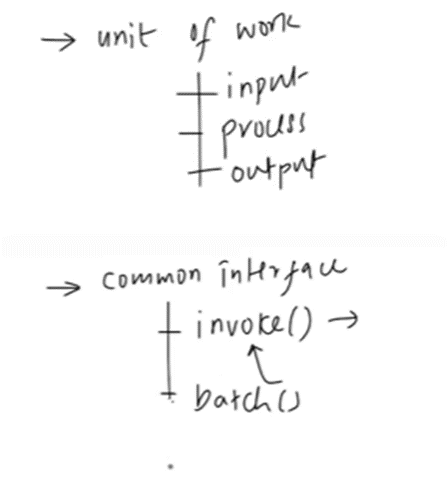 → unit of work
input
process
output
→ common interface
invoke() →
batch()